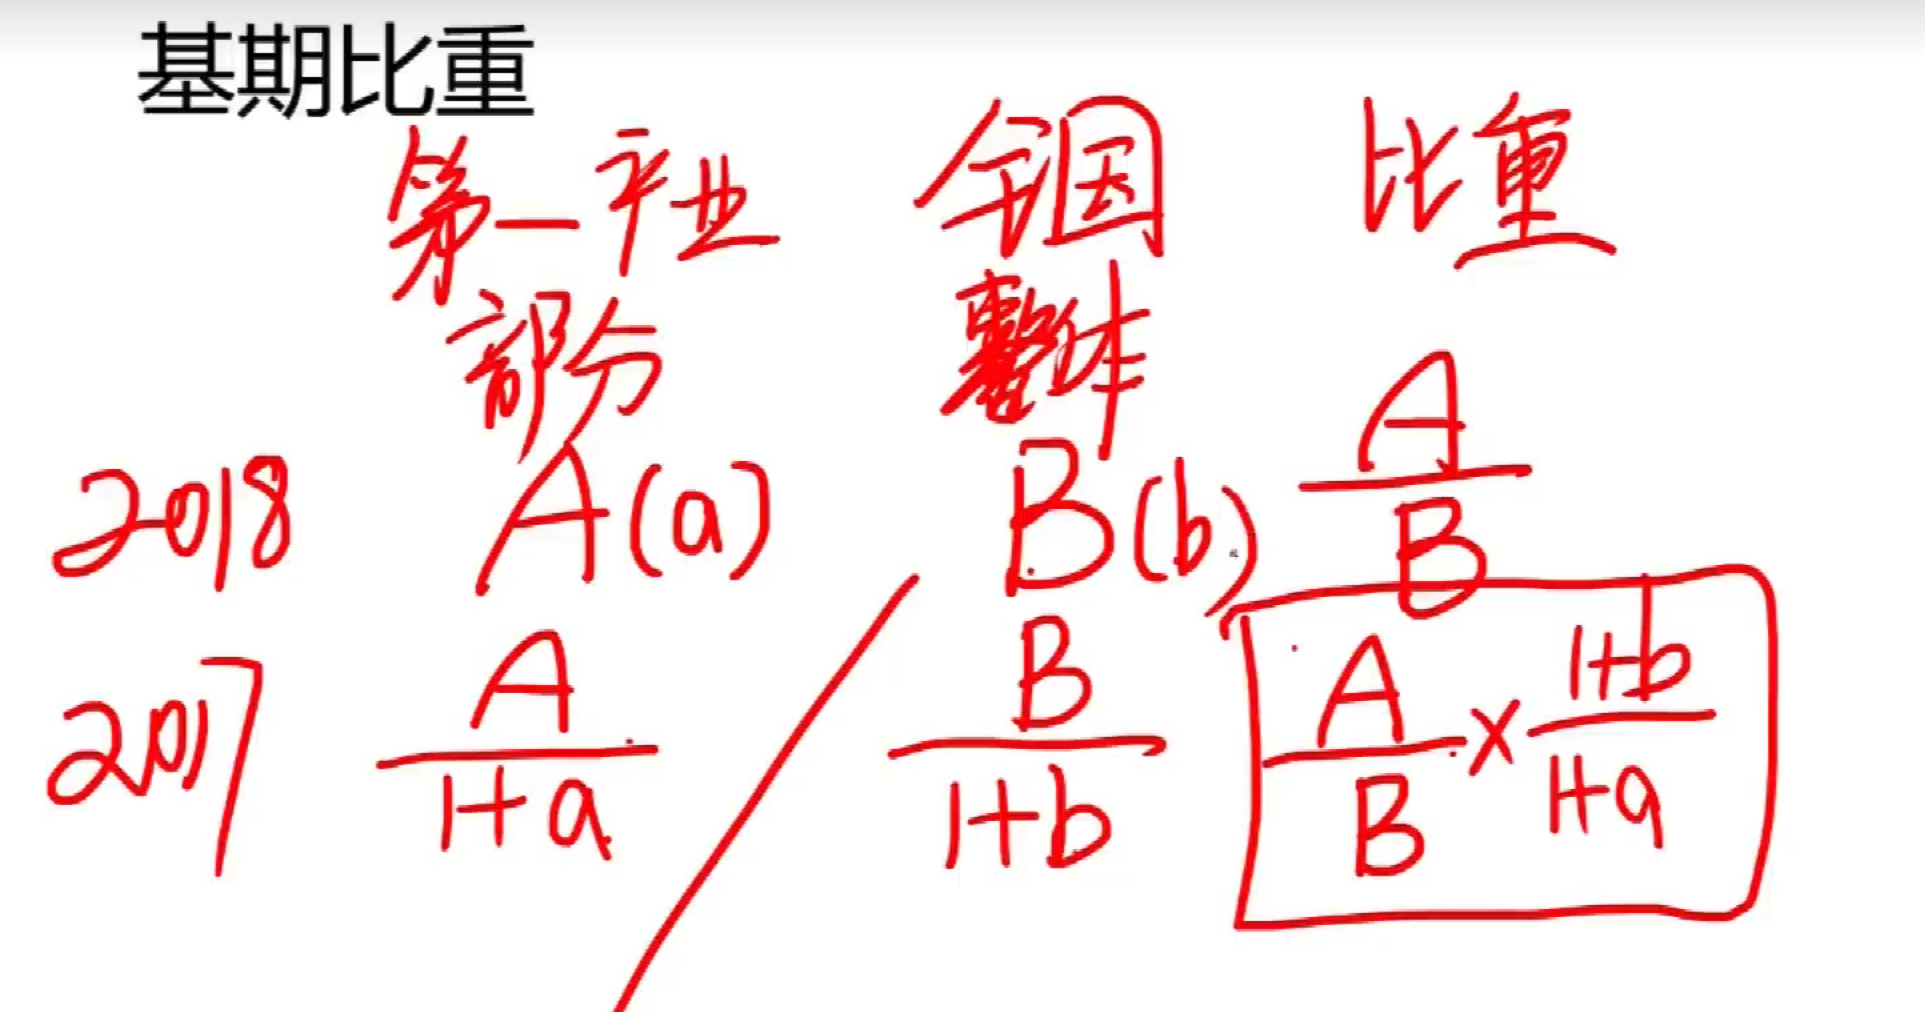 基期比重
第一产业 全国 比重
部分 整体
2018 A(a) B(b) A/B
2017 A/1+a / B/1+b A/B × 1+b/1+a